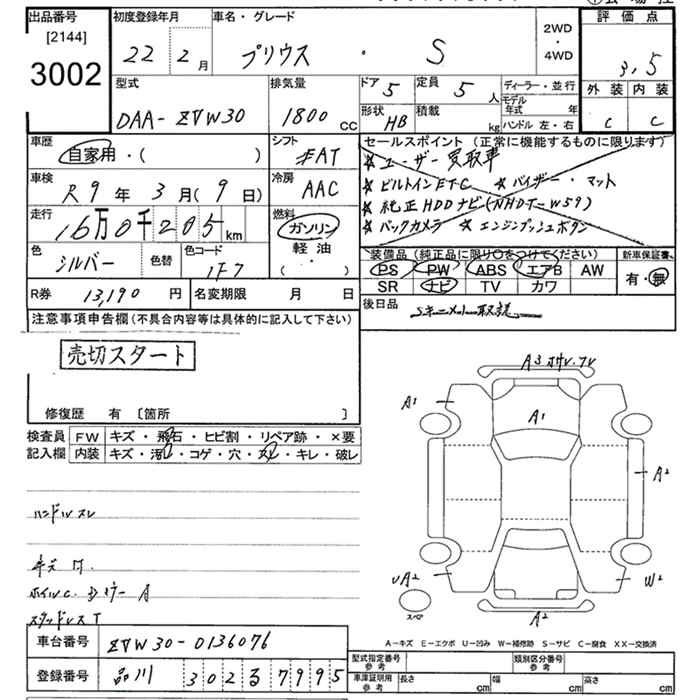 出品番号
[2144]
3002
初度登録年月
22年 2月
車名・グレード
プリウス ・ S
2WD
・
4WD
評価点
3.5
外装 内装
C C
型式
DAA-ZVW30
排気量
1800 CC
ドア 5
定員 5 人
形状 HB
積載 kg
ディーラー・並行
モデル年式 年
ハンドル 左・右
車歴
自家用・( )
シフト
FAT
車検
R9年 3月(9日)
冷房
AAC
走行
16万0千205 km
燃料
ガソリン
軽油
・
色
シルバー
色替
色コード
1F7
R券 13,190 円
名変期限 月 日
セールスポイント (正常に機能するものに限ります)
★ ユーザー買取車
★ ビルトインETC ★ バイザー・マット
★ 純正HDDナビ(NHDT-W59)
★ バックカメラ ★ エンジンプッシュボタン
装備品 (純正品に限り○をつけてください)
PS PW ABS エアB AW
SR ナビ TV カワ
新車保証書
有・無
後日品
Sキー・メンテ・取説
注意事項申告欄(不具合内容等は具体的に記入して下さい)
売切スタート
修復歴 有 [箇所 ]
検査員記入欄
FW キズ・飛石・ヒビ割・リペア跡・×要
内装 キズ・汚レ・コゲ・穴・スレ・キレ・破レ
ハンドルスレ
キズ
A
スタッドレスT
A3
A1
A1
A2
UA2
W2
A2
スペア
A-キズ E-エクボ U-凹み W-補修跡 S-サビ C-腐食 XX-交換済
車台番号 ZVW30-0136076
登録番号 品川 302 る 7995
型式指定番号 参考
類別区分番号 参考
車庫証明用 参考
長さ cm
幅 cm
高さ cm